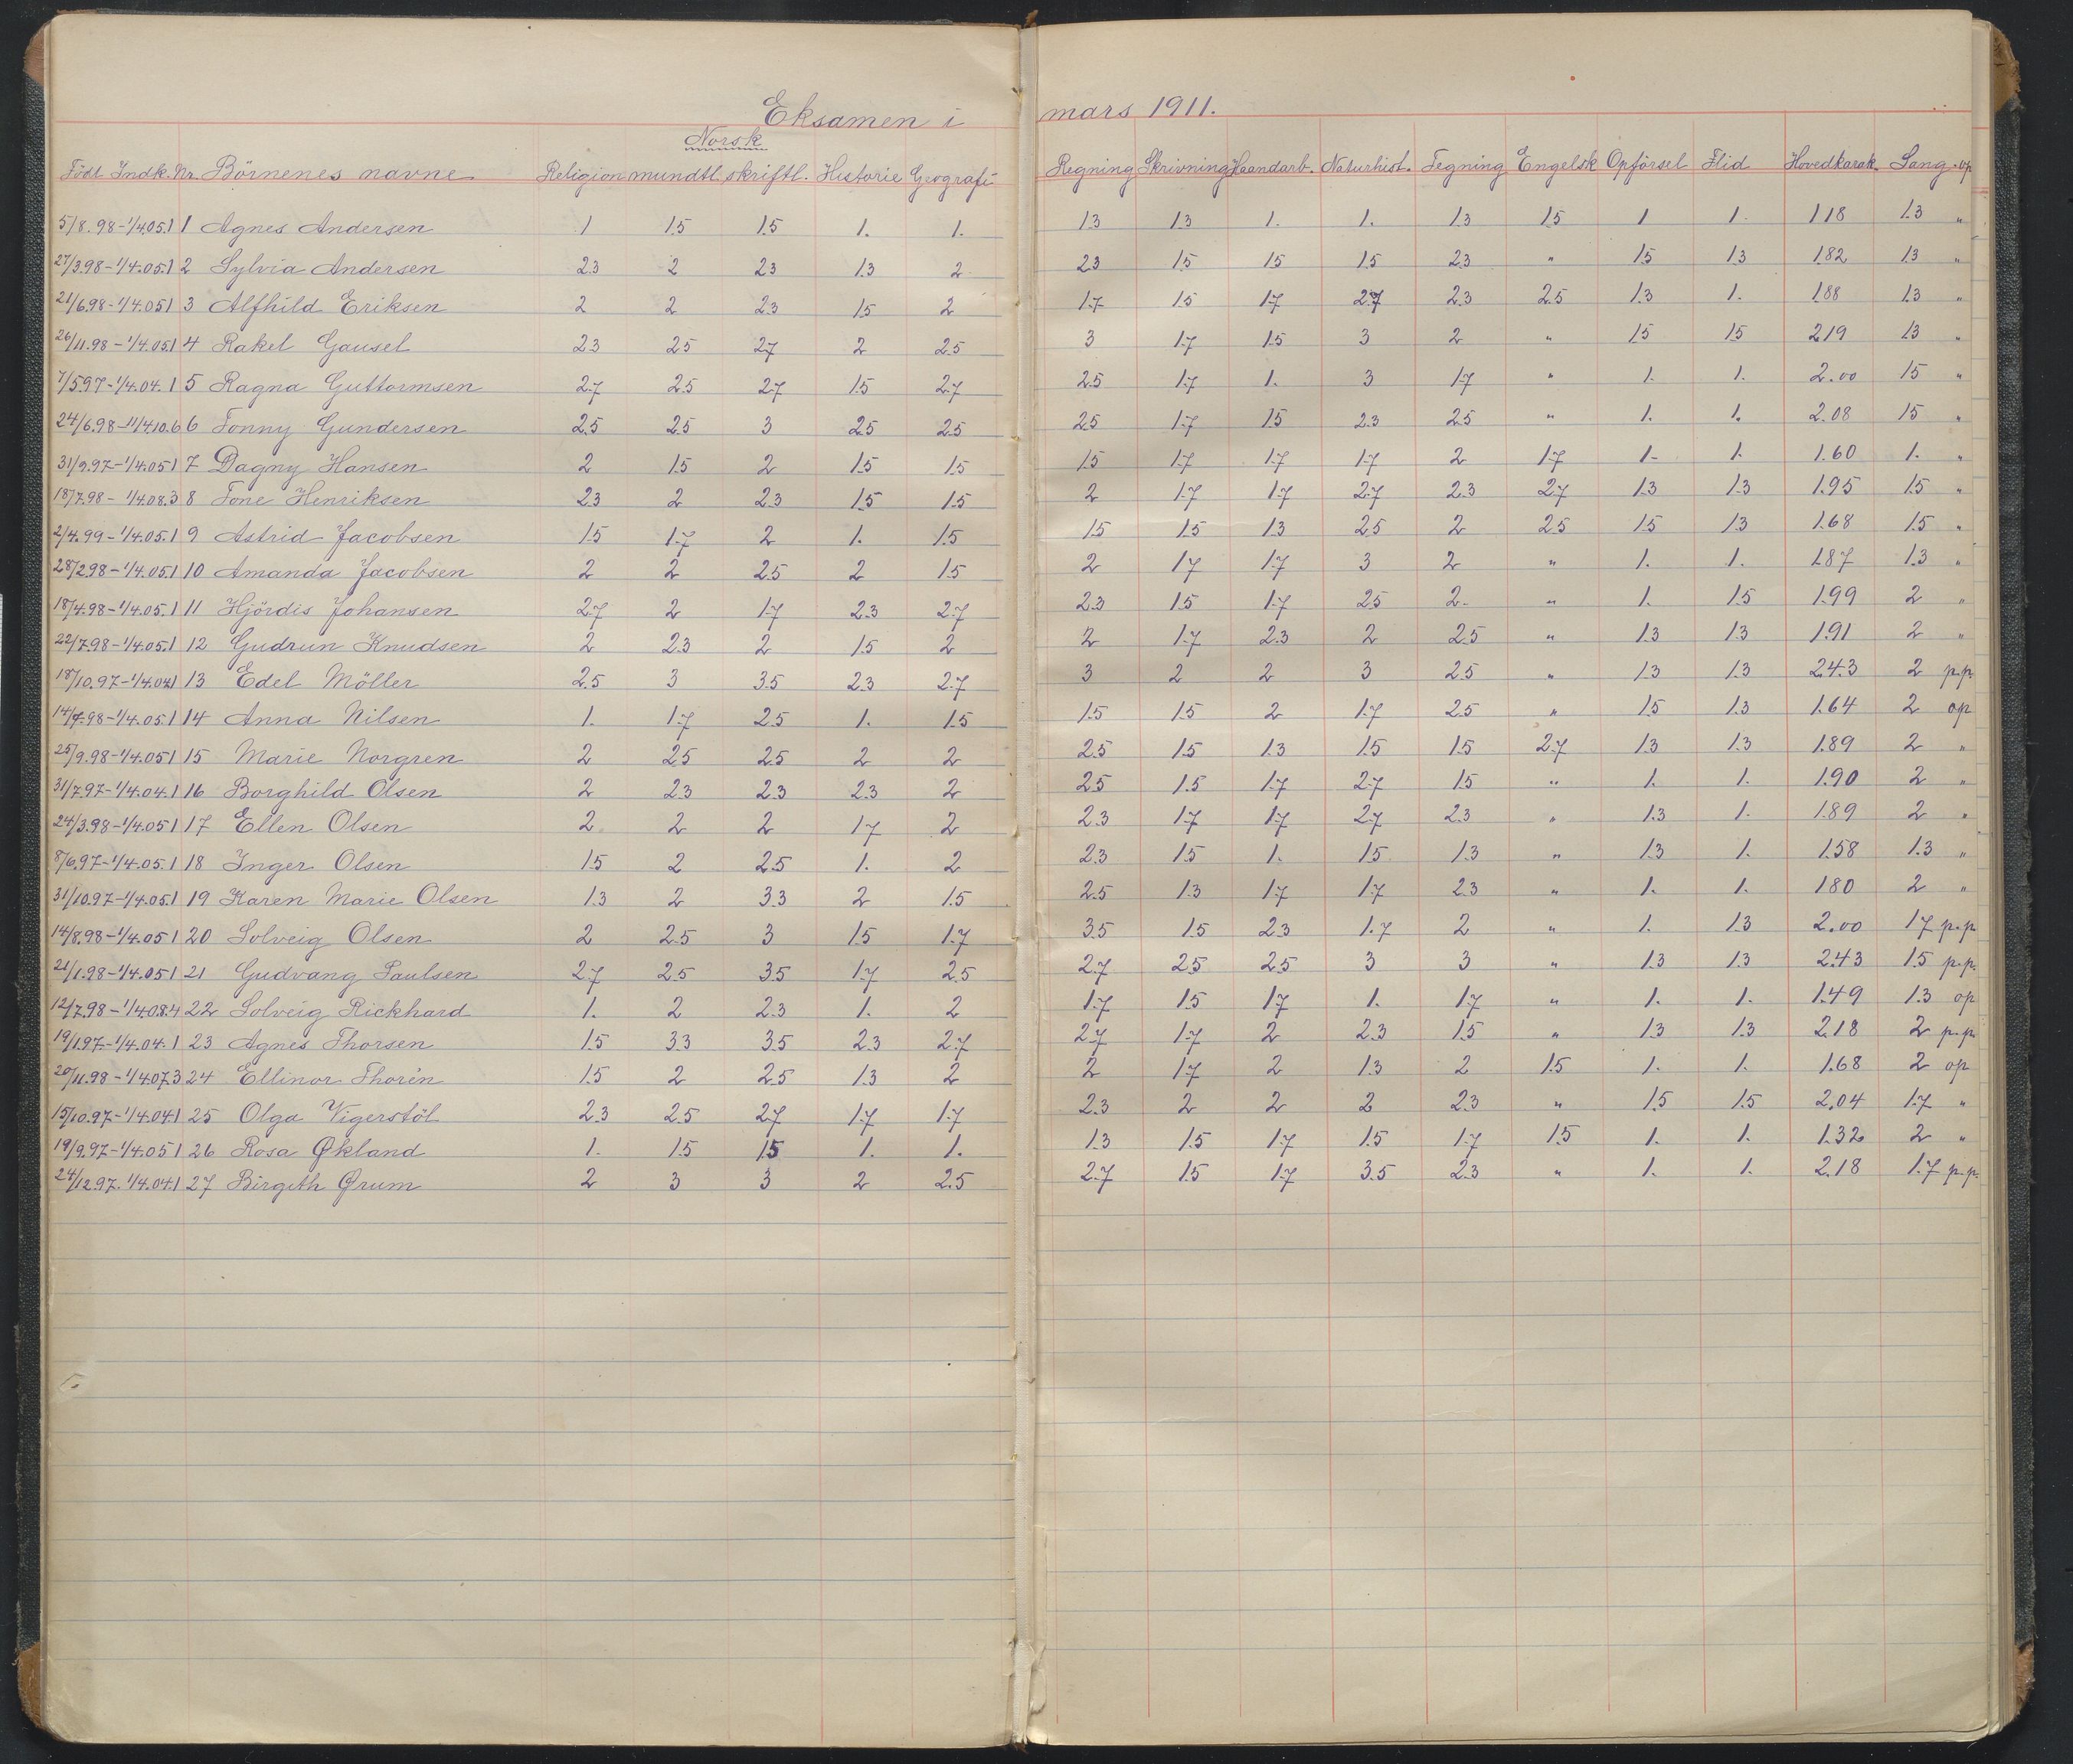 Eksamen i mars 1911.
Norsk
Födt Indk. Nr. Börnenes navne Religion mundtl. skriftl. Historie Geografi Regning Skrivning Haandarb. Naturhist. Tegning Engelsk Opförsel Flid Hovedkarak. Sang op
5/8.98-1/4.05.1 1 Agnes Andersen 1 1.5 1.5 1. 1. 1.3 1.3 1. 1. 1.3 1.5 1 1. 1.18 1.3 "
27/3.98-1/4.05.1 2 Sylvia Andersen 2.3 2 2.3 1.3 2 2.3 1.5 1.5 1.5 2.3 " 1.5 1.3 1.82 1.3 "
21/6.98-1/4.05.1 3 Alfhild Eriksen 2 2 2.3 1.5 2 1.7 1.5 1.7 2.7 2.3 2.5 1.3 1. 1.88 1.3 "
26/11.98-1/4.05.1 4 Rakel Gausel 2.3 2.5 2.7 2 2.5 3 1.7 1.5 3 2 " 1.5 1.5 2.19 1.3 "
7/5.97-1/4.04.1 5 Ragna Guttormsen 2.7 2.5 2.7 1.5 2.7 2.5 1.7 1. 3 1.7 " 1. 1. 2.00 1.5 "
24/6.98-11/4.10.6 6 Tonny Gundersen 2.5 2.5 3 2.5 2.5 2.5 1.7 1.5 2.3 2.5 " 1. 1. 2.08 1.5 "
31/9.97-1/4.05.1 7 Dagny Hansen 2 1.5 2 1.5 1.5 1.5 1.7 1.7 1.7 2 1.7 1. 1. 1.60 1. "
18/7.98-1/4.08.3 8 Tone Henriksen 2.3 2 2.3 1.5 1.5 2 1.7 1.7 2.7 2.3 2.7 1.3 1.3 1.95 1.5 "
2/4.99-1/4.05.1 9 Astrid Jacobsen 1.5 1.7 2 1. 1.5 1.5 1.5 1.3 2.5 2 2.5 1.5 1.3 1.68 1.5 "
28/2.98-1/4.05.1 10 Amanda Jacobsen 2 2 2.5 2 1.5 2 1.7 1.7 3 2 " 1. 1. 1.87 1.3 "
18/4.98-1/4.05.1 11 Hjördis Johansen 2.7 2 1.7 2.3 2.7 2.3 1.5 1.7 2.5 2. " 1. 1.5 1.99 2 "
22/7.98-1/4.05.1 12 Gudrun Knudsen 2 2.3 2 1.5 2 2 1.7 2.3 2 2.5 " 1.3 1.3 1.91 2 "
18/10.97-1/4.04.1 13 Edel Möller 2.5 3 3.5 2.3 2.7 3 2 2 3 2.5 " 1.3 1.3 2.43 2 p.p.
14/7.98-1/4.05.1 14 Anna Nilsen 1. 1.7 2.5 1. 1.5 1.5 1.5 2 1.7 2.5 " 1.5 1.3 1.64 2 op
25/9.98-1/4.05.1 15 Marie Norgren 2 2.5 2.5 2 2 2.5 1.5 1.3 1.5 1.5 2.7 1.3 1.3 1.89 2 "
31/7.97-1/4.04.1 16 Borghild Olsen 2 2.3 2.3 2.3 2 2.5 1.5 1.7 2.7 1.5 " 1. 1. 1.90 2 "
24/3.98-1/4.05.1 17 Ellen Olsen 2. 2 2 1.7 2 2.3 1.7 1.7 2.7 2.3 " 1.3 1. 1.89 2 "
8/6.97-1/4.05.1 18 Inger Olsen 1.5 2 2.5 1. 2 2.3 1.5 1. 1.5 1.3 " 1.3 1. 1.58 1.3 "
31/10.97-1/4.05.1 19 Karen Marie Olsen 1.3 2 3.3 2 1.5 2.5 1.3 1.7 1.7 2.3 " 1. 1. 1.80 2 "
14/8.98-1/4.05.1 20 Solveig Olsen 2 2.5 3 1.5 1.7 3.5 1.5 2.3 1.7 2 " 1. 1.3 2.00 1.7 p.p
21/1.98-1/4.05.1 21 Gudvang Paulsen 2.7 2.5 3.5 1.7 2.5 2.7 2.5 2.5 3 3 " 1.3 1.3 2.43 1.5 p.p.
12/7.98-1/4.08.4 22 Solveig Rickhard 1. 2 2.3 1. 2 1.7 1.5 1.7 1. 1.7 " 1. 1. 1.49 1.3 op
19/1.97-1/4.04.1 23 Agnes Thorsen 1.5 3.3 3.5 2.3 2.7 2.7 1.7 2 2.3 1.5 " 1.3 1.3 2.18 2 p.p.
20/11.98-1/4.07.3 24 Ellinor Thorén 1.5 2 2.5 1.3 2 2 1.7 2 1.3 2 1.5 1. 1. 1.68 2 op
15/10.97-1/4.04.1 25 Olga Vigerstöl 2.3 2.5 2.7 1.7 1.7 2.3 2 2 2 2.3 " 1.5 1.5 2.04 1.7 "
19/9.97-1/4.05.1 26 Rosa Økland 1. 1.5 1.5 1. 1. 1.3 1.5 1.7 1.5 1.7 1.5 1. 1. 1.32 2 "
24/12.97-1/4.04.1 27 Birgith Ørum 2 3 3 2 2.5 2.7 1.5 1.7 3.5 2.3 " 1. 1. 2.18 1.7 p.p.